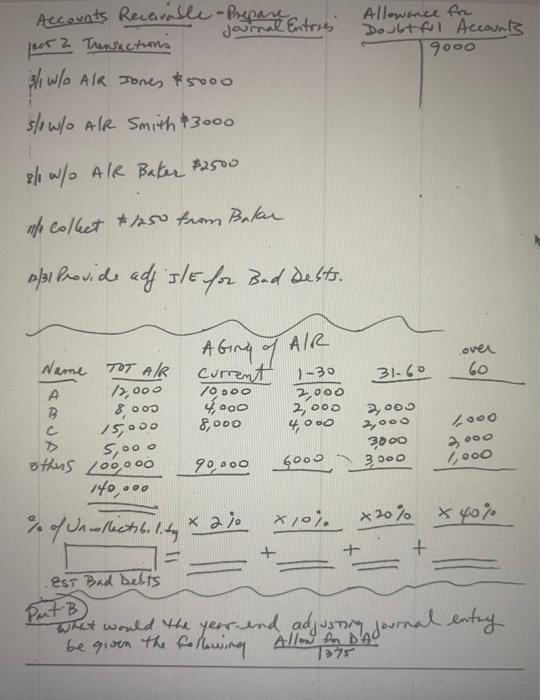 Accounts Receivable - Prepare Journal Entries
Allowance for Doubtful Accounts
9000
Transactions
3/1 w/o A/R Jones $5000
5/1 w/o A/R Smith $3000
8/1 w/o A/R Baker $2500
11/1 Collect $1250 from Baker
12/31 Provide adj J/E for Bad Debts.
Aging of A/R
Name TOT A/R Current 1-30 31-60 over 60
A 12,000 10,000 2,000
B 8,000 4,000 2,000 2,000
C 15,000 8,000 4,000 2,000 1,000
D 5,000 3000 2,000
others 100,000 90,000 6000 3,000 1,000
140,000
% of Uncollectibility x 2% x 10% x 20% x 40%
= + + +
EST Bad Debts
Part B
What would the year-end adjusting journal entry
be given the following Allow for D/A
1375